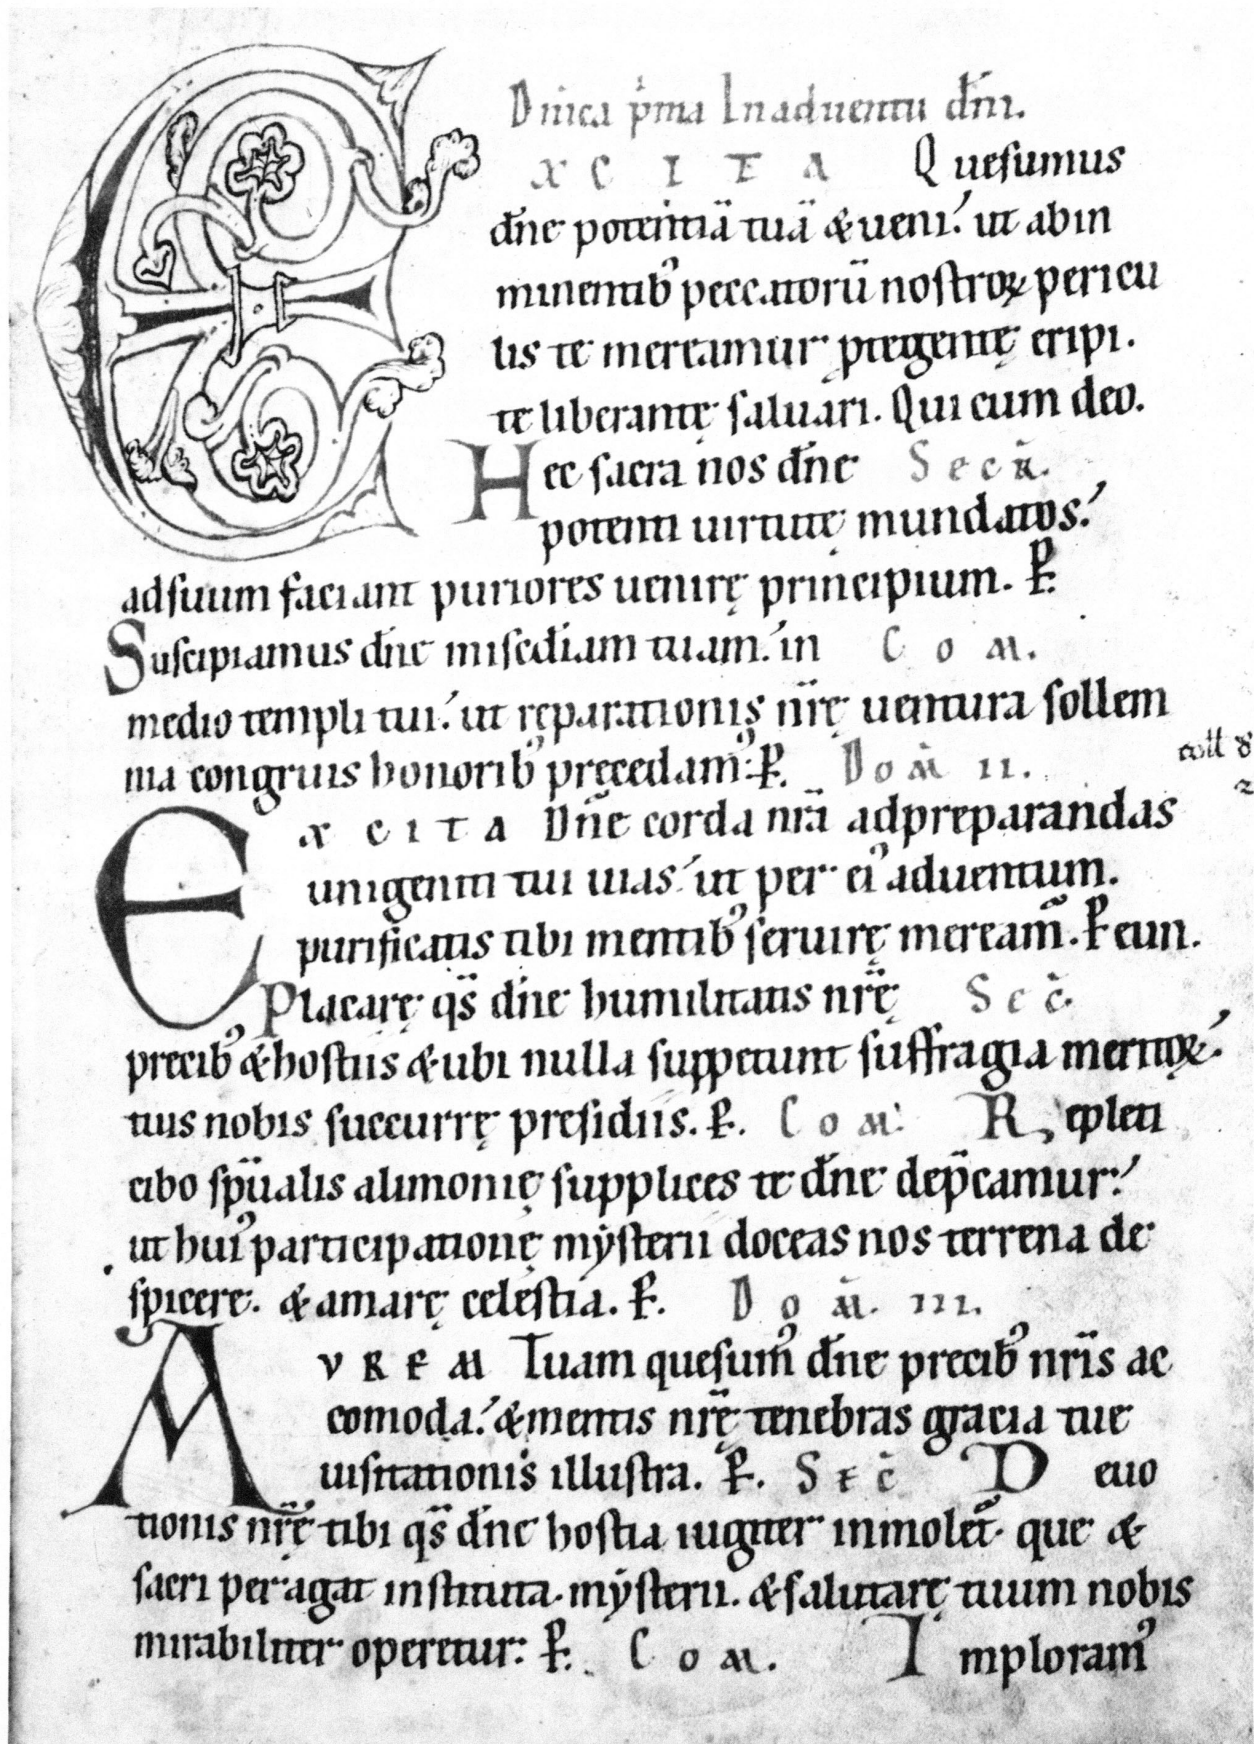 Dnica pͥma In aduentu dn̄i.
EXCITA Quesumus
dn̄e potentiā tuā & ueni. ut ab in
minentibꝰ peccatorū nostroꝝ pericu
lis te mereamur ꝓtegentę eripi.
te liberantę saluari. Qui cum deo.
Hec sacra nos dn̄e Secr̄.
potenti uirtutę mundatos.
ad suum faciant puriores uenirę principium. P̱.
Suscipiamus dn̄e miscd̄iam tuam. in Com.
medio templi tui. ut ręparationis nr̄ę uentura sollem
nia congruis honoribꝰ pręcedamꝰ. P̱. Dom̄ II.
coll 8
2
EXCITA Dn̄e corda nr̄a ad preparandas
unigeniti tui uias. ut per eiꝰ aduentum.
purificatis tibi mentibꝰ seruirę meream̄. P̱ eun.
Placarę qs̄ dn̄e humilitatis nr̄ę Sec̄.
precibꝰ & hostiis & ubi nulla suppetunt suffragia meritoꝝ.
tuis nobis succurrę presidiis. P̱. Com. Repleti
cibo sp̄ualis alimonię supplices te dn̄e dep̄camur.
ut huiꝰ participationę mẏsterii doceas nos terrena de
spicere. & amarę celestia. P̱. Dom̄. III.
AVREM Tuam quesumꝰ dn̄e precibꝰ nr̄is ac
comoda. & mentis nr̄ę tenebras gracia tue
uisitationis illustra. P̱. Sec̄ Deuo
tionis nr̄ę tibi qs̄ dn̄e hostia iugiter inmolet̄. que &
sacri peragat instituta. mẏsterii. & salutarę tuum nobis
mirabiliter operetur. P̱. Com. Imploramꝰ